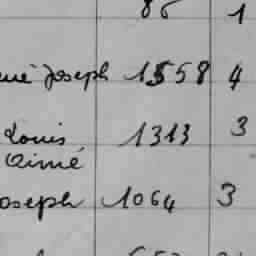 1
Joseph 1558 4
Louis 1313 3
Aimé
Joseph 1064 3